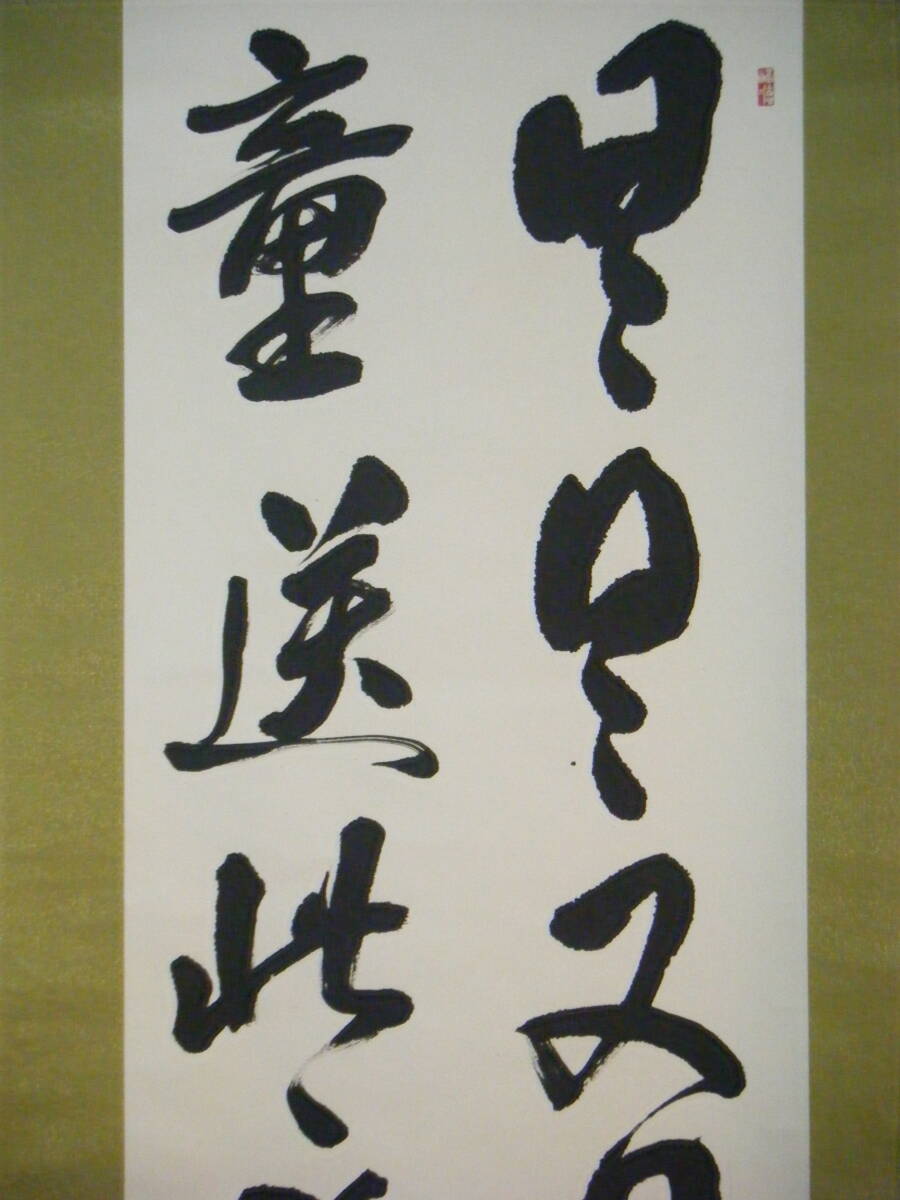 日々日々又
童送此